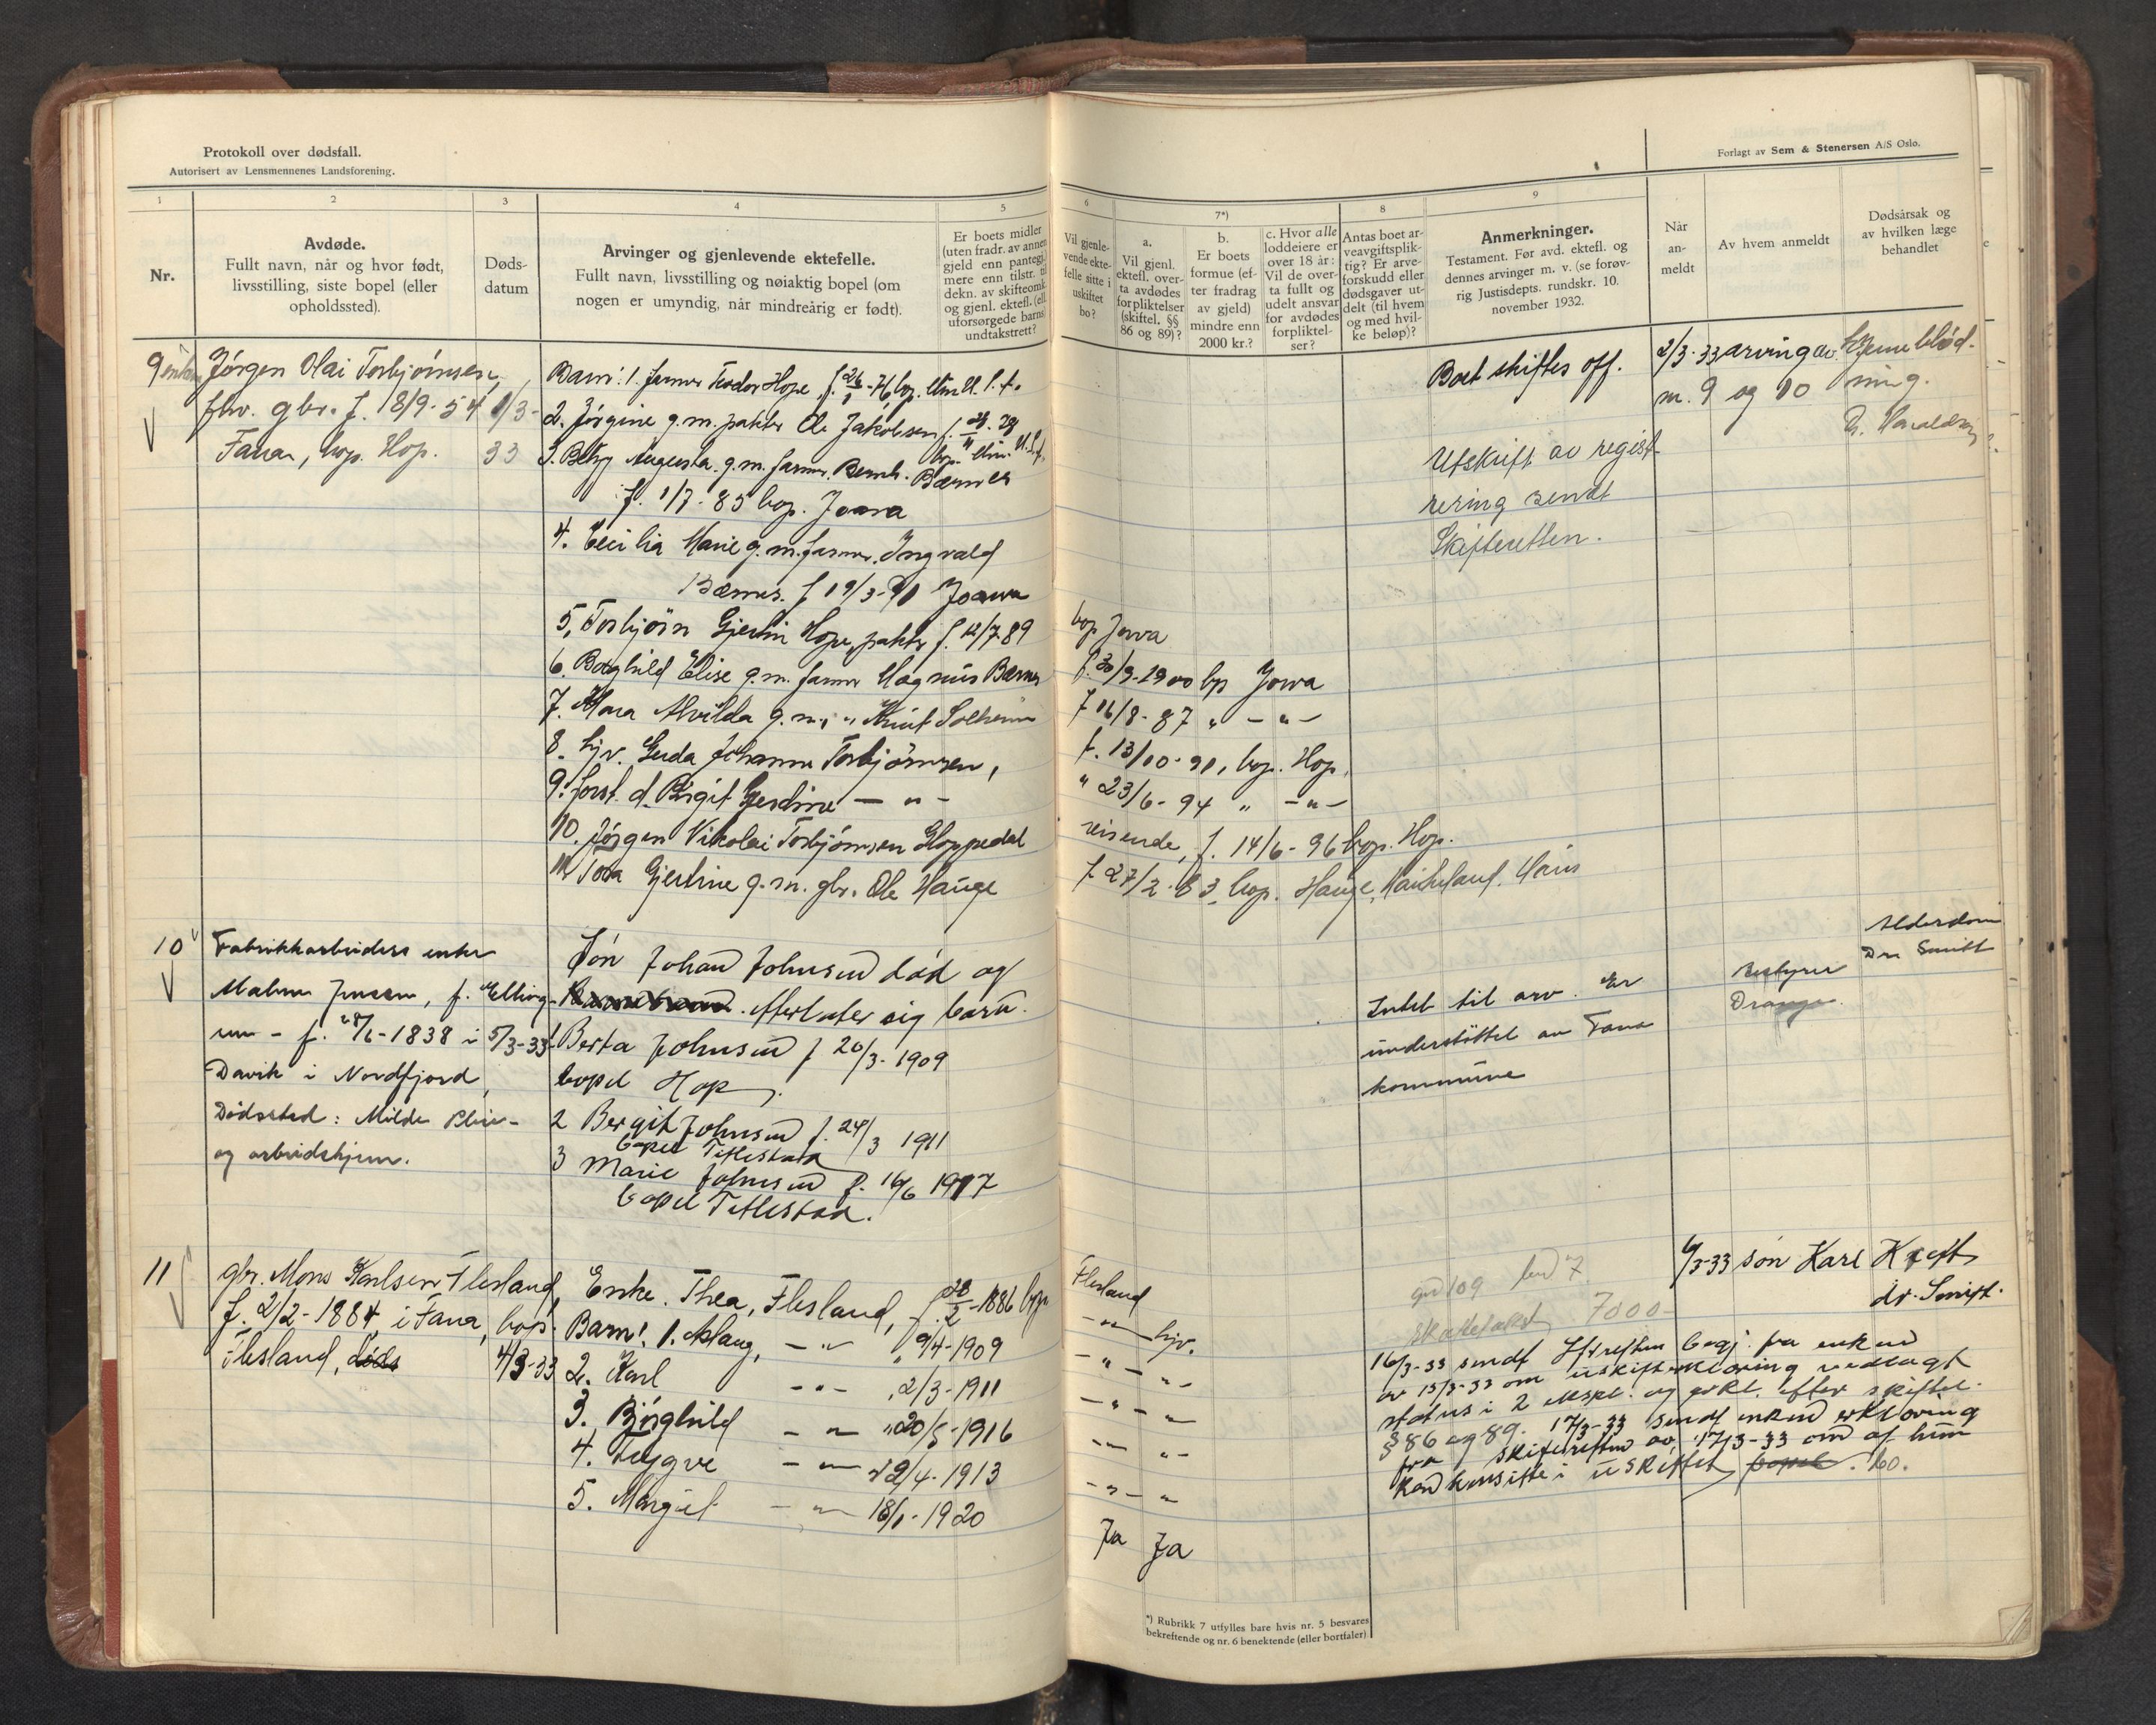 Protokoll over dødsfall.
Autorisert av Lensmennenes Landsforening.
Forlagt av Sem & Stenersen A/S Oslo.
1
2
3
4
5
6
7*)
8
9
Nr.
Avdøde.
Fullt navn, når og hvor født,
livsstilling, siste bopel (eller
opholdssted).
Døds-
datum
Arvinger og gjenlevende ektefelle.
Fullt navn, livsstilling og nøiaktig bopel (om
nogen er umyndig, når mindreårig er født).
Er boets midler
(uten fradr. av annen
gjeld enn pantegj.)
mere enn tilstr. til
dekn. av skifteomk.
og gjenl. ektefl. (ell.
uforsørgede barns)
undtakstrett?
Vil gjenle-
vende ekte-
felle sitte i
uskiftet
bo?
a.
Vil gjenl.
ektefl. over-
ta avdødes
forpliktelser
(skiftel. §§
86 og 89)?
b.
Er boets
formue (ef-
ter fradrag
av gjeld)
mindre enn
2000 kr.?
c. Hvor alle
loddeiere er
over 18 år:
Vil de over-
ta fullt og
udelt ansvar
for avdødes
forpliktel-
ser?
Antas boet ar-
veavgiftsplik-
tig? Er arve-
forskudd eller
dødsgaver ut-
delt (til hvem
og med hvil-
ke beløp)?
Anmerkninger.
Testament. Før avd. ektefl. og
dennes arvinger m. v. (se forøv-
rig Justisdepts. rundskr. 10.
november 1932.
Når
an-
meldt
Av hvem anmeldt
Dødsårsak og
av hvilken læge
behandlet
9 Jörgen Olai Torbjörnsen,
fhv. gbr. f. 18/9-54 1/3-
Fana, bop. Hop. 33
Barn: 1. farmer Teodor Hope, f. 26/1-76, bop.
2. Jörgine g.m. pakter Ole Jakobsen f.
3. Betsy Augusta g.m. farmer Bernh. Barnes
f. 1/7-85 bop. Jowa
4. Cecilia Marie g.m. farmer Ingvald
Barnes. f 19/3-81 Jowa
5, Torbjörn Gjertin Hope, pakter f. 12/7.89 bop Jowa
6. Borghild Elise g.m. farmer Magnus Barnes f. 30/9-1900 bp Jowa
7. Alvilda g.m. " Knut Solheim f 16/8-87 " - " -
8. hjv. Gerda Johanne Torbjörnsen, f. 13/10-91, bop. Hop.
9. forst. d. Birgit Gjerdine - " - " 23/6-94 " - " -
10. Jörgen Nikolai Torbjörnsen Hoppedal reisende, f. 14/6-96 bop. Hop.
11 Tora Gjertine g.m. gbr. Ole Hauge f 27/2-83, bop. Hauge,
Boet skiftes off.
Utskrift av regist-
rering sendt
Skifteretten.
2/3-33 arving av
nr. 9 og 10
Hjerneblöd-
ning.
10 Fabrikkarbeiders enke
Malene Jensen, f. Elling-
sen - f. 28/6-1838 i 5/3-33
Davik i Nordfjord,
Dödssted: Milde Pleie-
og arbeidshjem.
Sön Johan Johnsen död og
efterlater sig barn.
1 Berta Johnsen f 20/3-1909
bopel Hop.
2 Bergit Johnsen f. 24/3 1911
bopel Titlestad
3 Marie Johnsen f. 16/6 1917
bopel Titlestad.
Intet til arv. Er
understöttet av Fana
kommune
Bestyrer
Drange.
Alderdom
Dr. Smitt
11 gbr. Mons Karlsen Flesland,
f. 2/2-1884 i Fana, bop.
Flesland, döds 4/3-33
Enke. Thea, Flesland, f. 28/2-1886 bop. Flesland
Barn: 1. Aslaug, - " - " 9/4-1909 - " - hjv.
2. Karl - " - " 2/3-1911 - " - " -
3. Björghild - " - " 20/5-1916 - " - " -
4. Trygve - " - 29/4-1913 - " - " -
5. Margit - " - 18/1-1920 - " - "
Ja Ja
gnr 109 bnr 7
Skattetakst 7000-
16/3-33 sendt Skifteretten begj. fra enken
av 15/3-33 om uskifteerklæring vedlagt
status i 2 ekspl. og erkl. efter skiftel.
§ 86 og 89. 17/3-33 sendt enken erklæring
fra skifteretten av 17/3-33 om at hun
kan hensitte i uskiftet bopel. bo.
6/3-33 sön Karl
Kreft
dr. Smitt.
*) Rubrikk 7 utfylles bare hvis nr. 5 besvares
bekreftende og nr. 6 benektende (eller bortfaler).